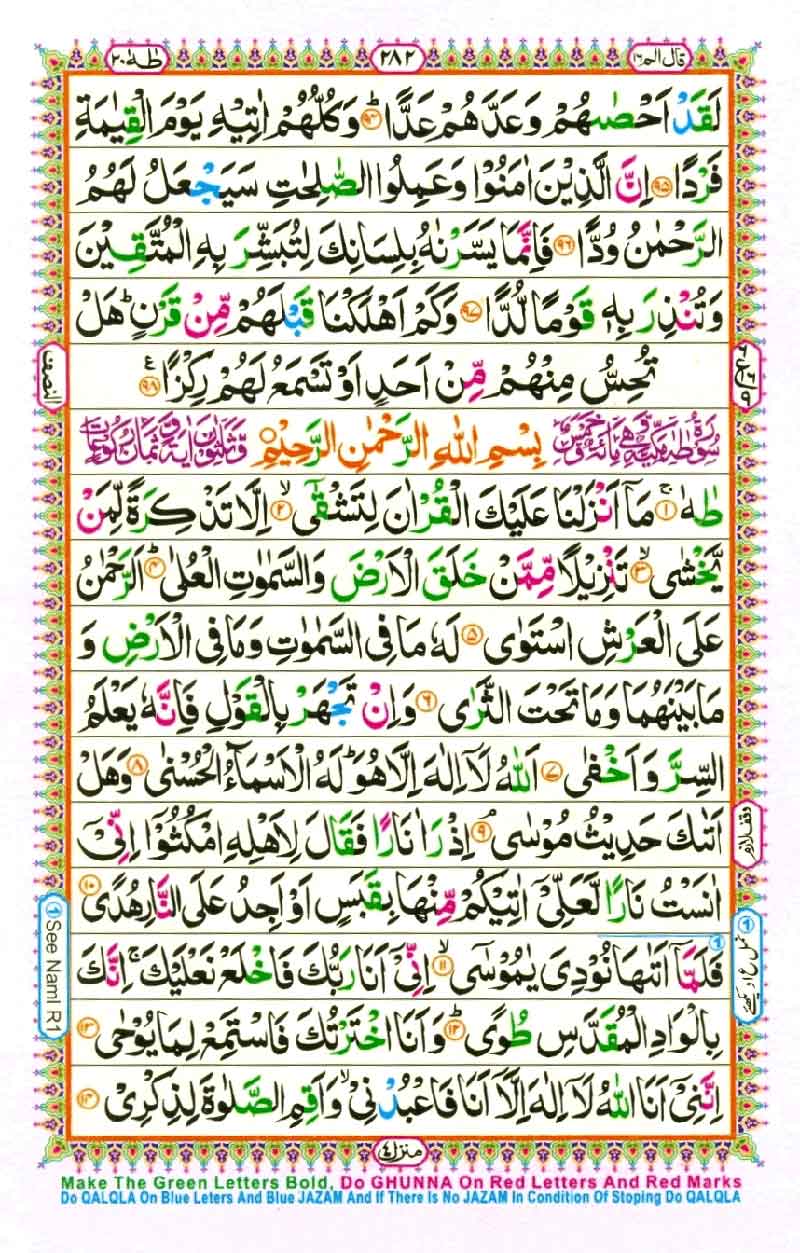 قال الم ١٦ ٢٨٢ طٰهٰ ٢٠
لَقَدْ اَحْصٰىهُمْ وَعَدَّهُمْ عَدًّا ۟ؕ ۹۴ وَكُلُّهُمْ اٰتِيْهِ يَوْمَ الْقِيٰمَةِ
فَرْدًا ۹۵ اِنَّ الَّذِيْنَ اٰمَنُوْا وَعَمِلُوا الصّٰلِحٰتِ سَيَجْعَلُ لَهُمُ
الرَّحْمٰنُ وُدًّا ۹۶ فَاِنَّمَا يَسَّرْنٰهُ بِلِسَانِكَ لِتُبَشِّرَ بِهِ الْمُتَّقِيْنَ
وَتُنْذِرَ بِهٖ قَوْمًا لُّدًّا ۹۷ وَكَمْ اَهْلَكْنَا قَبْلَهُمْ مِّنْ قَرْنٍ ؕ هَلْ
تُحِسُّ مِنْهُمْ مِّنْ اَحَدٍ اَوْ تَسْمَعُ لَهُمْ رِكْزًا ۹۸ ع
النصف
سُوْرَةُ طٰهٰ مَكِّيَّةٌ وَّهِيَ مِائَةٌ وَّخَمْسٌ بِسْمِ اللّٰهِ الرَّحْمٰنِ الرَّحِيْمِ وَّثَلٰثُوْنَ اٰيَةً وَّثَمَانِ رُكُوْعَاتٍ
طٰهٰ ۚ ۱ مَاۤ اَنْزَلْنَا عَلَيْكَ الْقُرْاٰنَ لِتَشْقٰۤى ۙ ۲ اِلَّا تَذْكِرَةً لِّمَنْ
يَّخْشٰى ۙ ۳ تَنْزِيْلًا مِّمَّنْ خَلَقَ الْاَرْضَ وَالسَّمٰوٰتِ الْعُلٰى ؕ ۴ اَلرَّحْمٰنُ
عَلَى الْعَرْشِ اسْتَوٰى ۵ لَهٗ مَا فِى السَّمٰوٰتِ وَمَا فِى الْاَرْضِ وَ
مَا بَيْنَهُمَا وَمَا تَحْتَ الثَّرٰى ۶ وَاِنْ تَجْهَرْ بِالْقَوْلِ فَاِنَّهٗ يَعْلَمُ
السِّرَّ وَاَخْفٰى ۷ اَللّٰهُ لَاۤ اِلٰهَ اِلَّا هُوَ ؕ لَهُ الْاَسْمَآءُ الْحُسْنٰى ۸ وَهَلْ
اَتٰىكَ حَدِيْثُ مُوْسٰى ۘ ۹ اِذْ رَاٰ نَارًا فَقَالَ لِاَهْلِهِ امْكُثُوْۤا اِنِّىْۤ
وقف لازم
اٰنَسْتُ نَارًا لَّعَلِّىْۤ اٰتِيْكُمْ مِّنْهَا بِقَبَسٍ اَوْ اَجِدُ عَلَى النَّارِ هُدًى ۱۰
فَلَمَّاۤ اَتٰىهَا نُوْدِىَ يٰمُوْسٰى ۙ ۱۱ اِنِّىْۤ اَنَا رَبُّكَ فَاخْلَعْ نَعْلَيْكَ ۚ اِنَّكَ
۱ See Naml R1
بِالْوَادِ الْمُقَدَّسِ طُوًى ؕ ۱۲ وَاَنَا اخْتَرْتُكَ فَاسْتَمِعْ لِمَا يُوْحٰى ۱۳
اِنَّنِىْۤ اَنَا اللّٰهُ لَاۤ اِلٰهَ اِلَّاۤ اَنَا فَاعْبُدْنِىْ ۙ وَاَقِمِ الصَّلٰوةَ لِذِكْرِىْ ۱۴
منزل ٤
Make The Green Letters Bold, Do GHUNNA On Red Letters And Red Marks
Do QALQLA On Blue Leters And Blue JAZAM And If There Is No JAZAM In Condition Of Stoping Do QALQLA